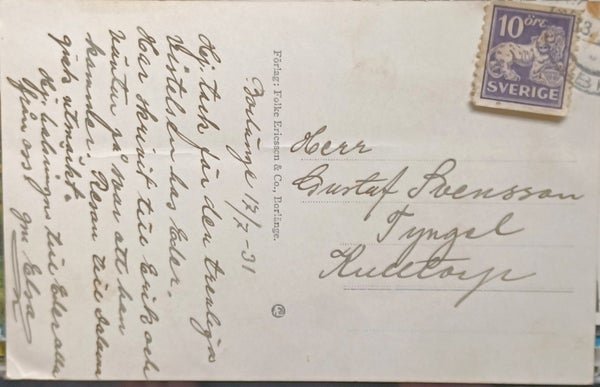 Borlänge 12/7 - 31
Hej, tack för den trevliga
Vistelsen hos Eder.
Har skrivit till Erik och
väntar på svar att han
kommer. Resan till Dalarna
gick utmärkt.
Hj. hälsningar till Eder alla
från oss gm Elsa
Förlag: Folke Ericsson & Co., Borlänge.
10 öre
SVERIGE
Herr
Gustaf Svensson
Tyngel
Rudtorp